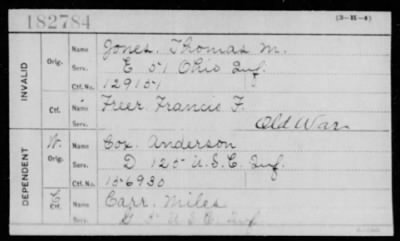 182784
(3-H-4)
INVALID
Orig.
Name Jones, Thomas M.
Serv. E 51 Ohio Inf.
Ctf. No. 129151
Ctf.
Name Freer Francis F.
Serv. Old War
DEPENDENT
W.
Orig.
Name Cox, Anderson
Serv. D 125 U.S.C. Inf.
Ctf. No. 156930
Ctf.
Name Carr, Miles
Serv. G 5 U.S.C. Inf.